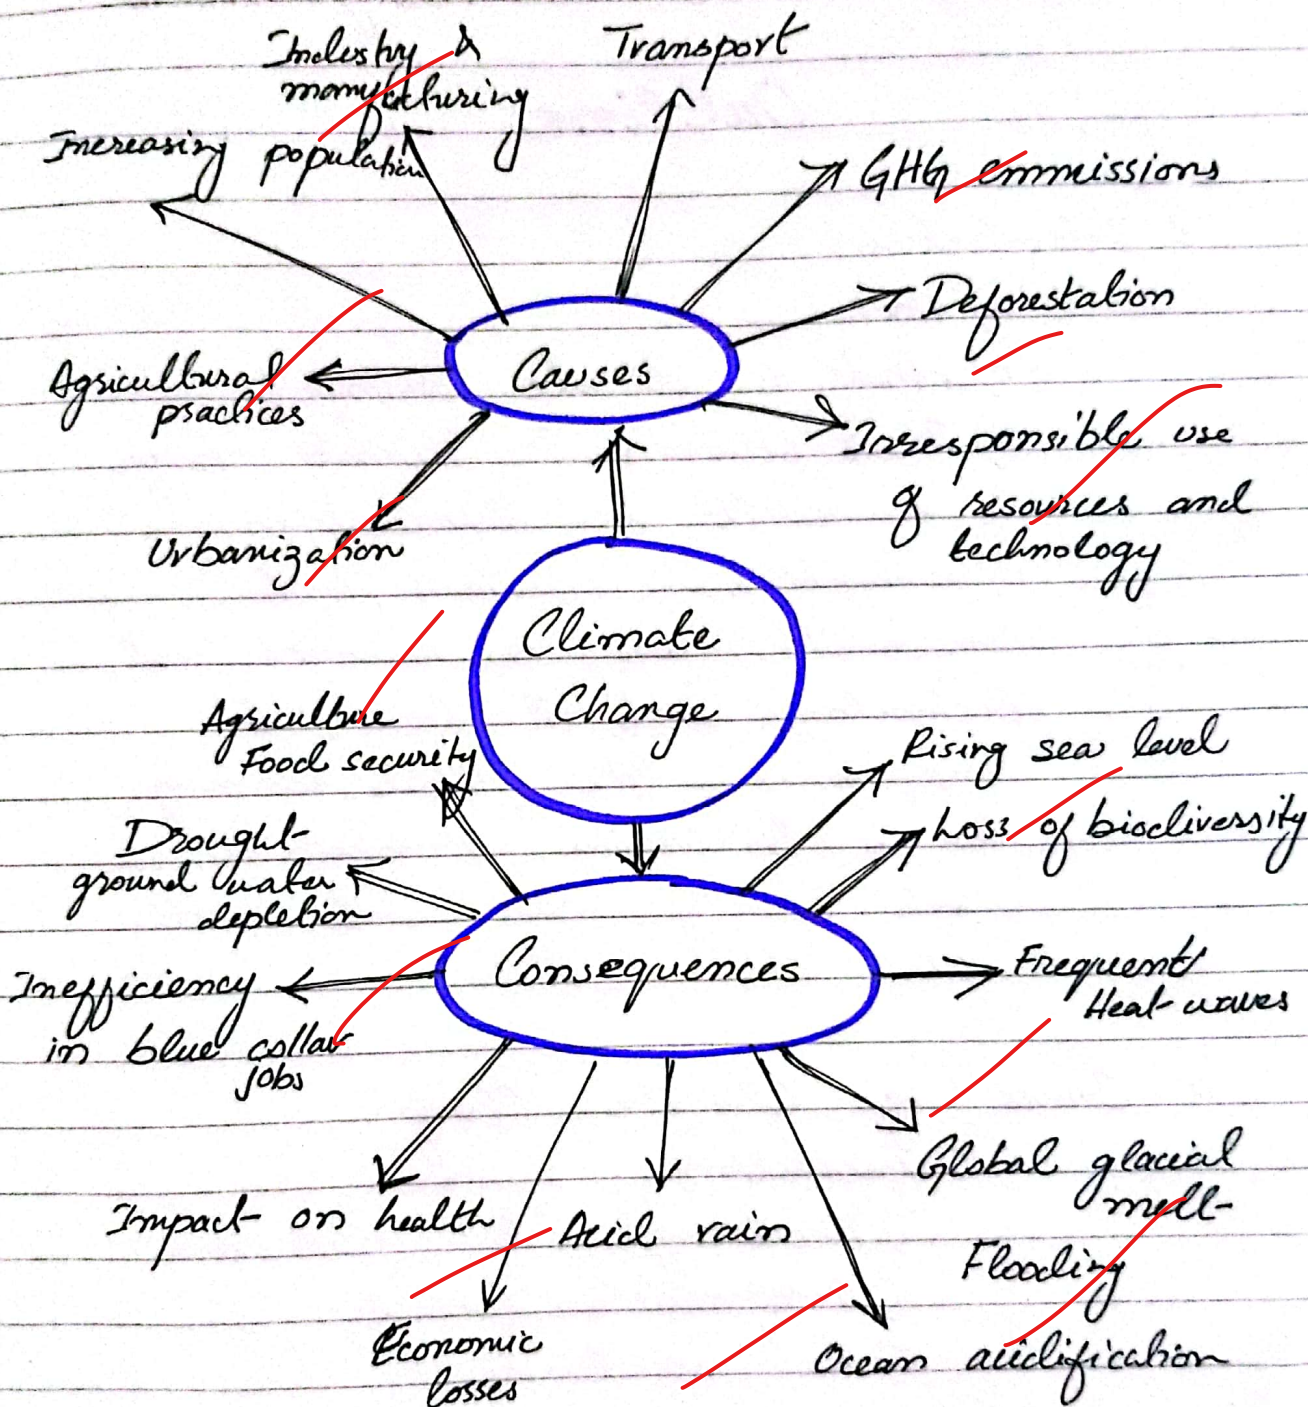 Industry &
manufacturing
Transport
Increasing population
GHG emmissions
Deforestation
Agricultural
practices
Causes
Irresponsible use
of resources and
technology
Urbanization
Climate
Change
Agriculture
Food security
Rising sea level
Loss of biodiversity
Drought
ground water
depletion
Consequences
Frequent
Heat waves
Inefficiency
in blue collar
jobs
Global glacial
melt
Impact on health
Acid rain
Flooding
Economic
losses
Ocean acidification